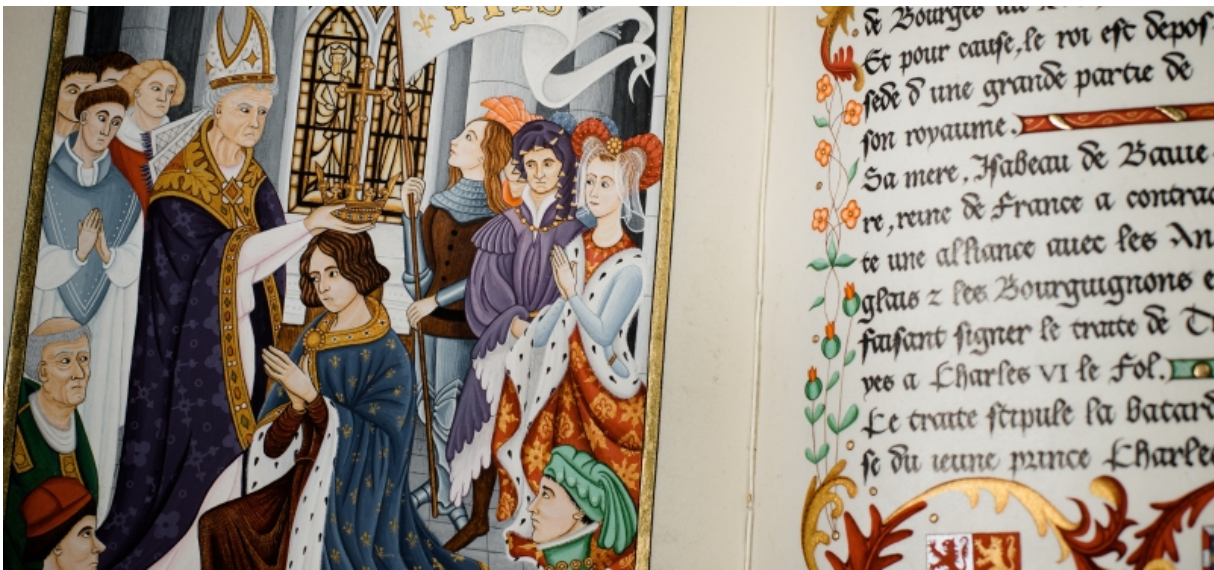 de Bourges
Et pour cause, le roi est depos-
sede d'une grande partie de
son royaume.
Sa mere, Isabeau de Bavie-
re, reine de France a contrac
te une alliance avec les An
glais z les Bourguignons e
faisant signer le traite de Tr
yes a Charles VI le Fol.
Le traite stipule la batard
se du jeune prince Charles